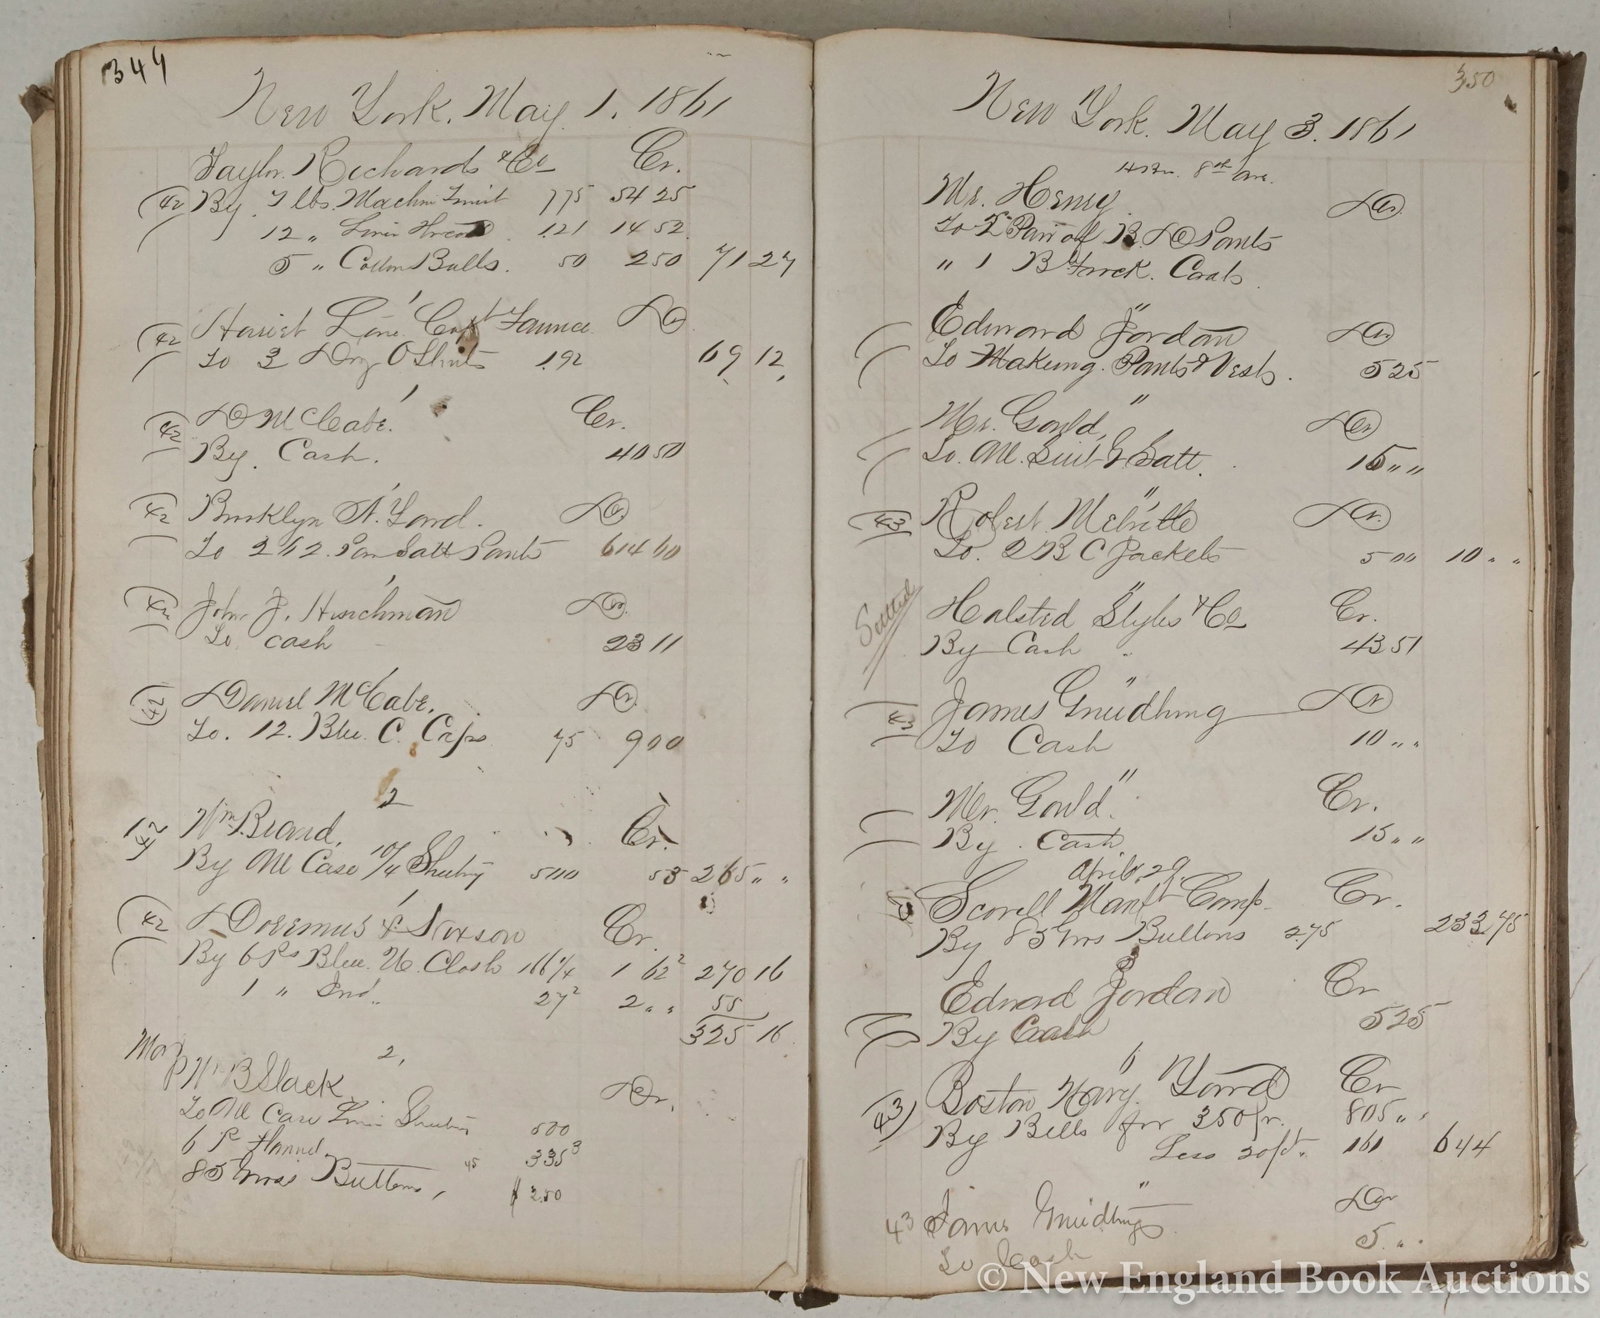 344
New York. May 1. 1861
Taylor. Richards & Co Cr.
42 By 7 lbs. Machn Twist 775 54 25
12 " 121 14 52
5 " Cotton Balls. 50 2 50 71 27
42 Harriet Lane Capt Faunce Dr
To 3 Doz O Shirts 192 69 12
42 D McCabe. Cr.
By. Cash. 40 50
42 Brooklyn N. Yard. Dr
To 242. Satt Pants 614 60
42 John J. Hinchman Dr.
To cash 23 11
42 Daniel McCabe. Dr.
To. 12. Blue. C. Caps 75 9 00
2
42 Wm Brand. Cr.
By One Case 10/4 Sheeting 500 53 265 " "
42 Doremus & Nixson Cr.
By 6 Ps Blue. U. Cloth 166 1/4 1 62 2 270 16
1 " Ind.. 27 2 2 " " 55
325 16
2,
Wm B Slack Dr.
To One Case Sheeting 500
6 P Flannel 335 3
85 Gross Buttons, 45 $ 2.50
350
New York. May 3. 1861
8th Ave.
Mr. Henry Dr
To 2 Pair of B. D Pants
" 1 B Frock. Coats
"
Edward Jordan Dr
To Making. Pants & Vests. 5 25
"
Mr. Gould Dr
To. One. Suit Satt. 15 " "
"
43 Robert Melville Dr.
To. 2 B C Jackets 5 00 10 " "
Settled
"
Halsted Styles & Co Cr.
By Cash 43 51
"
43 James Gniedhing Dr
To Cash 10 " "
"
Mr. Gould. Cr.
By. Cash 15 " "
April. 29.
Scovill Manft Comp. Cr.
By 85 Gros Buttons 2.75 233.75
Edward Jordan Cr
By Cash 5 25
6
43 Boston Navy Yard Cr
By Bills for 350 pr. 805 " "
Less 20 pct. 161 644
"
43 James Gniedhing Dr
To Cash 5 " "
© New England Book Auctions